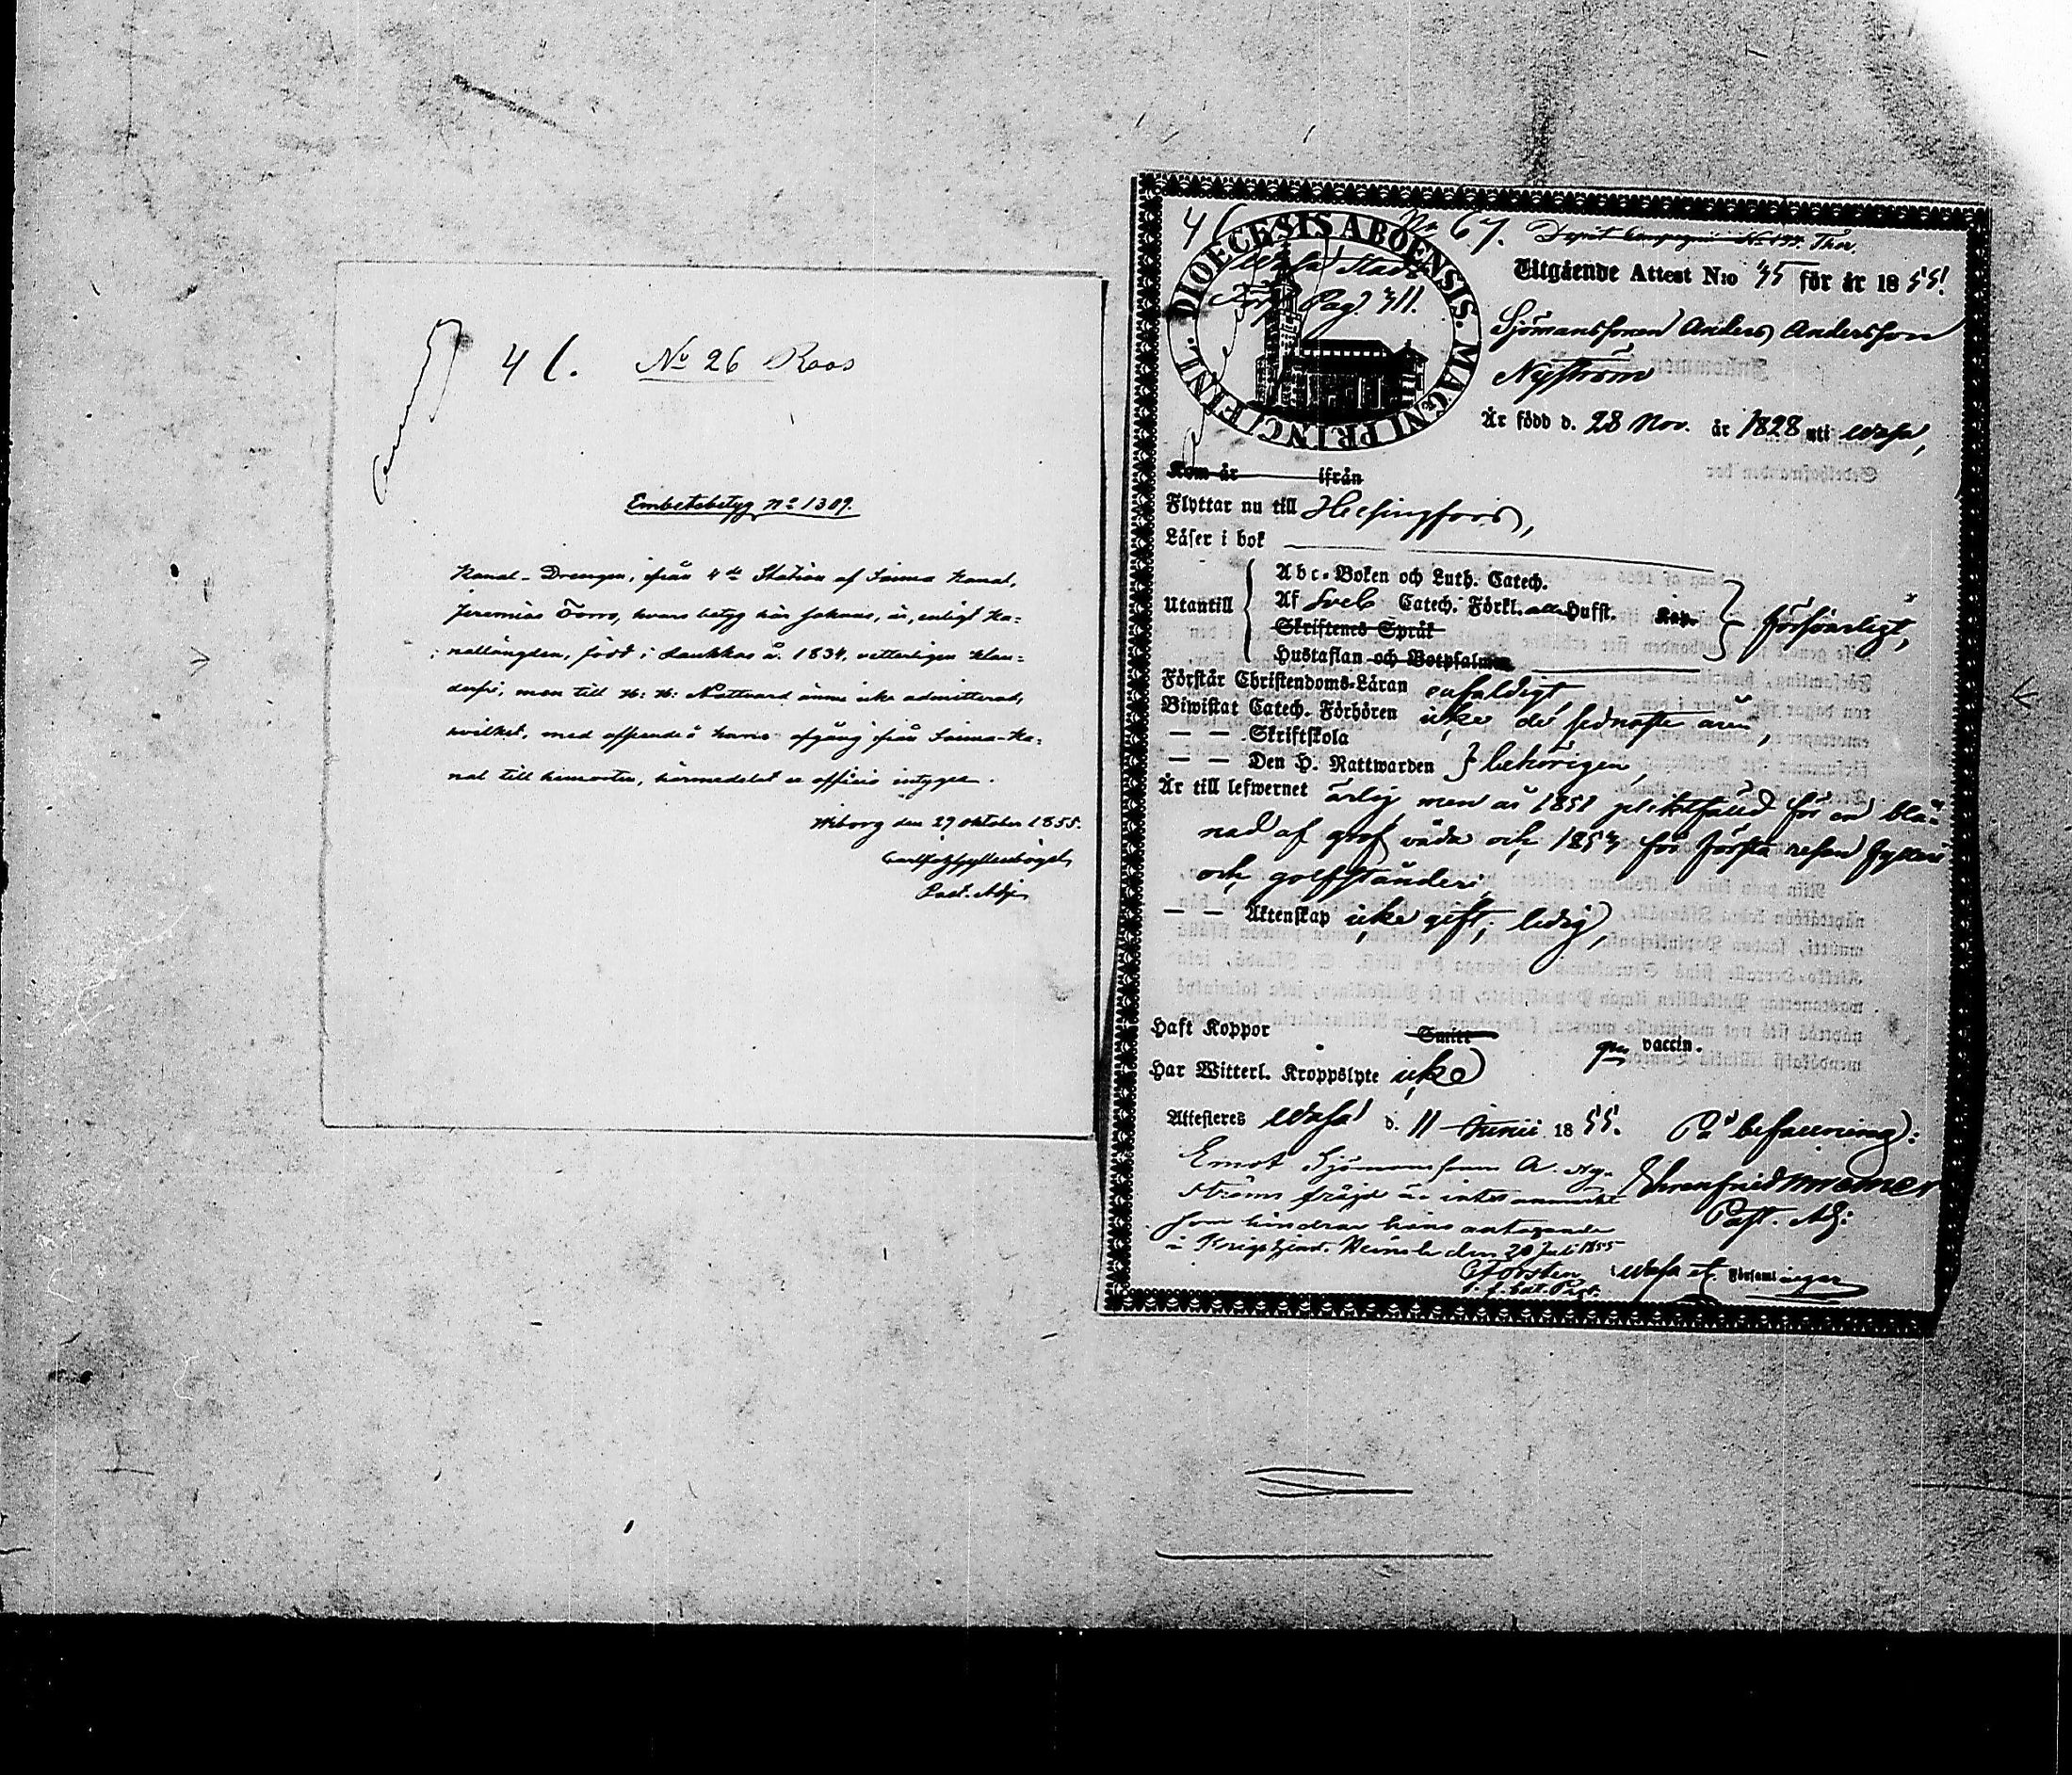 4 C. No 26 Roos
Embetsbetyg No 1309.
Kanal-Drengen, ifrån 4de Station af Saima Kanal,
Jeremias Torro, hvars betyg här saknas, är, enligt Ka-
nallängden, född i Laukkas å. 1834, vetterligen klan-
derfri, men till H: H: Nattvard ännu icke admitterad,
hvilket, med afseende å hans afgång ifrån Saima-Ka-
nal till hemorten, härmedelst ex officio intygar.
Wiborg den 29 Oktober 1855.
Past. Adj.
4 C No 67. Thor.
DIOECESIS ABOENSIS. MAGNI PRINC. FINL.
Wasa Stads
Pag. 311.
Utgående Attest N:o 35 för år 1855.
Sjömanssonen Anders Andersson
Nyström
Är född d. 28 Nov. år 1828 uti Wasa,
Kom år ifrån
Flyttar nu till Helsingfors,
Läser i bok
Utantill
Abc-Boken och Luth. Catech.
Af Sveb. Catech. Förkl. Hufst. Kap.
Skriftenes Språk
Hustaflan och Botpsalmen
försvarligt,
Förstår Christendoms-Läran enfaldigt,
Biwistat Catech. Förhören icke de sednaste åren,
— — Skriftskola
— — Den H. Nattwarden } behörigen,
Är till lefwernet ärlig men år 1851 pliktfälld för en blå-
nad af grof våda och 1853 för första resan fylleri
och
— — Äktenskap icke gift, ledig,
Haft Koppor Smitt vaccin.
Har Witterl. Kroppslyte icke
Attesteras Wasa d. 11 Junii 1855. På befallning:
Emot Sjömanssonen A. Ny-
ströms fräjd är intet anmärkt
som hindrar hans antagande
i Krigstjenst. den 20 Juli 1855
Past. Adj:
C Forsten
Wasa et. Församlingar